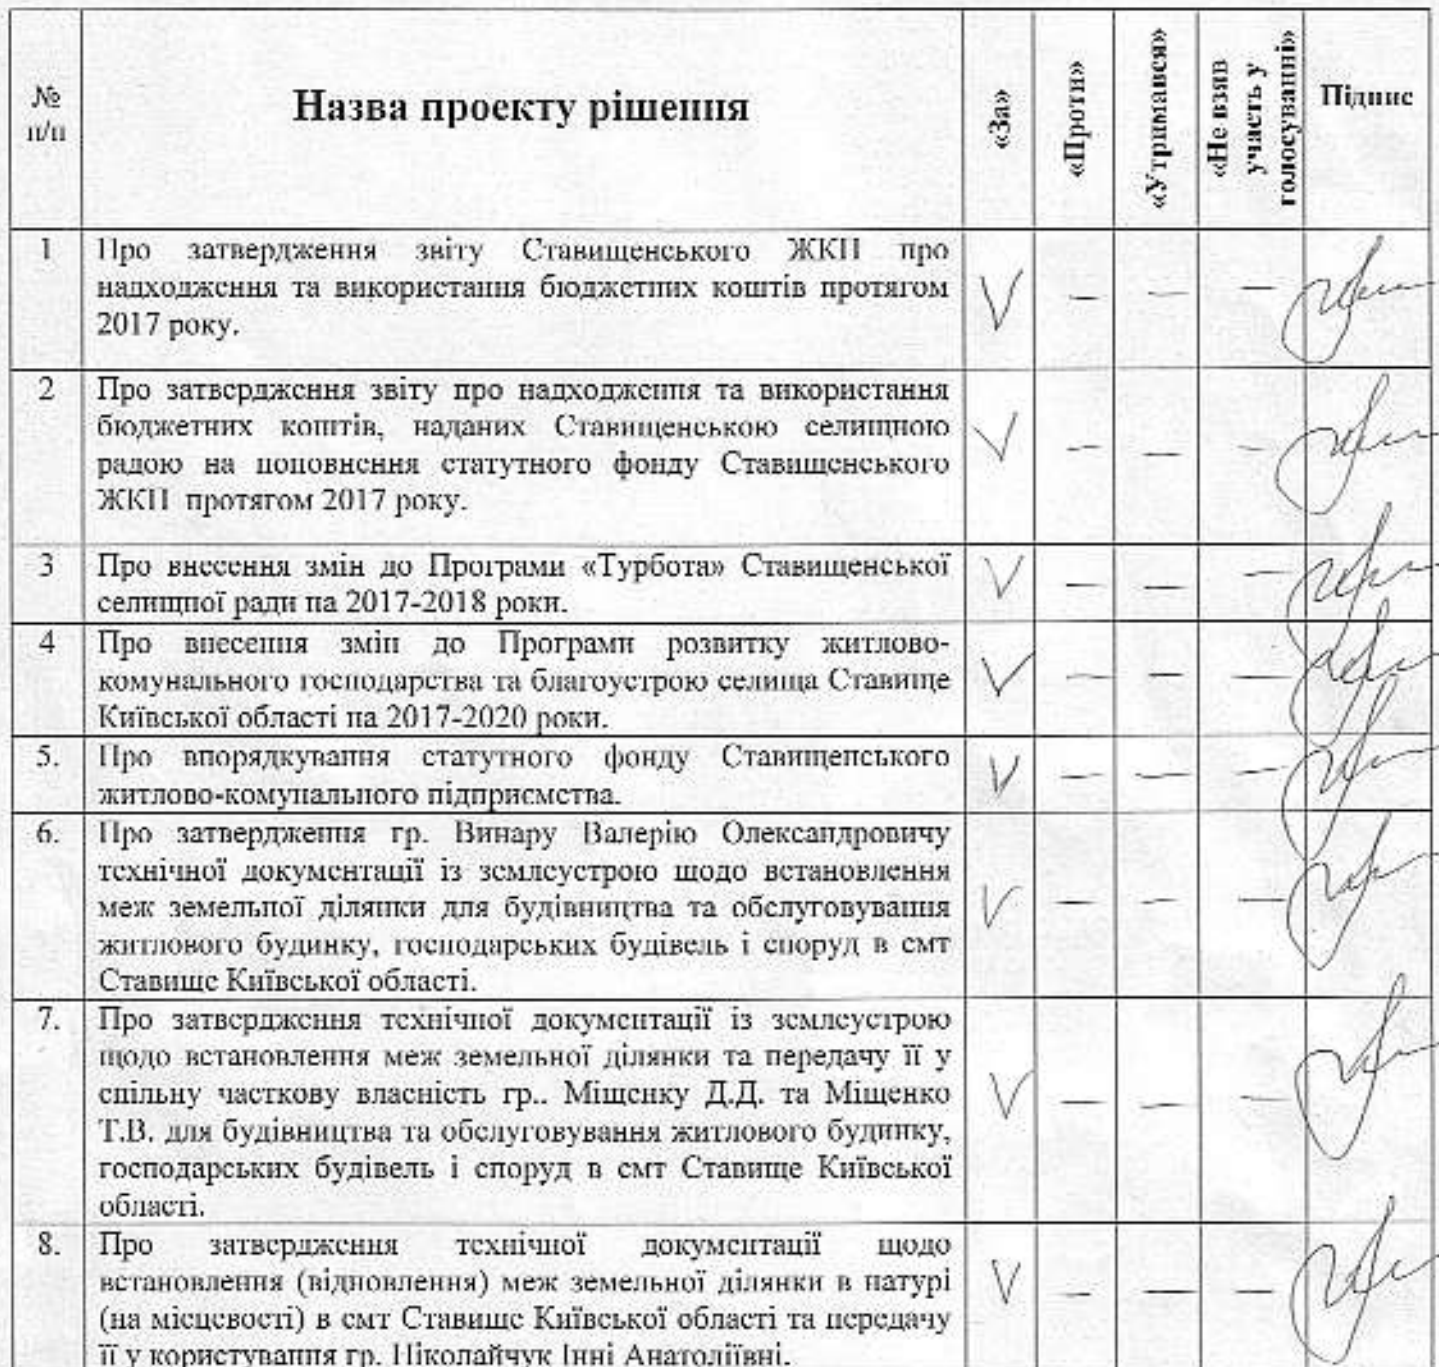 №
п/п
Назва проекту рішення
«За»
«Проти»
«Утримався»
«Не взяв
участь у
голосуванні»
Підпис
1 Про затвердження звіту Ставищенського ЖКП про
надходження та використання бюджетних коштів протягом
2017 року.
V — — —
2 Про затвердження звіту про надходження та використання
бюджетних коштів, наданих Ставищенською селищною
радою на поповнення статутного фонду Ставищенського
ЖКП протягом 2017 року.
V — — —
3 Про внесення змін до Програми «Турбота» Ставищенської
селищної ради на 2017-2018 роки.
V — — —
4 Про внесення змін до Програми розвитку житлово-
комунального господарства та благоустрою селища Ставище
Київської області на 2017-2020 роки.
V — — —
5. Про впорядкування статутного фонду Ставищенського
житлово-комунального підприємства.
V — — —
6. Про затвердження гр. Винару Валерію Олександровичу
технічної документації із землеустрою щодо встановлення
меж земельної ділянки для будівництва та обслуговування
житлового будинку, господарських будівель і споруд в смт
Ставище Київської області.
V — — —
7. Про затвердження технічної документації із землеустрою
щодо встановлення меж земельної ділянки та передачу її у
спільну часткову власність гр.. Міщенку Д.Д. та Міщенко
Т.В. для будівництва та обслуговування житлового будинку,
господарських будівель і споруд в смт Ставище Київської
області.
V — — —
8. Про затвердження технічної документації щодо
встановлення (відновлення) меж земельної ділянки в натурі
(на місцевості) в смт Ставище Київської області та передачу
її у користування гр. Ніколайчук Інні Анатоліївні.
V — — —